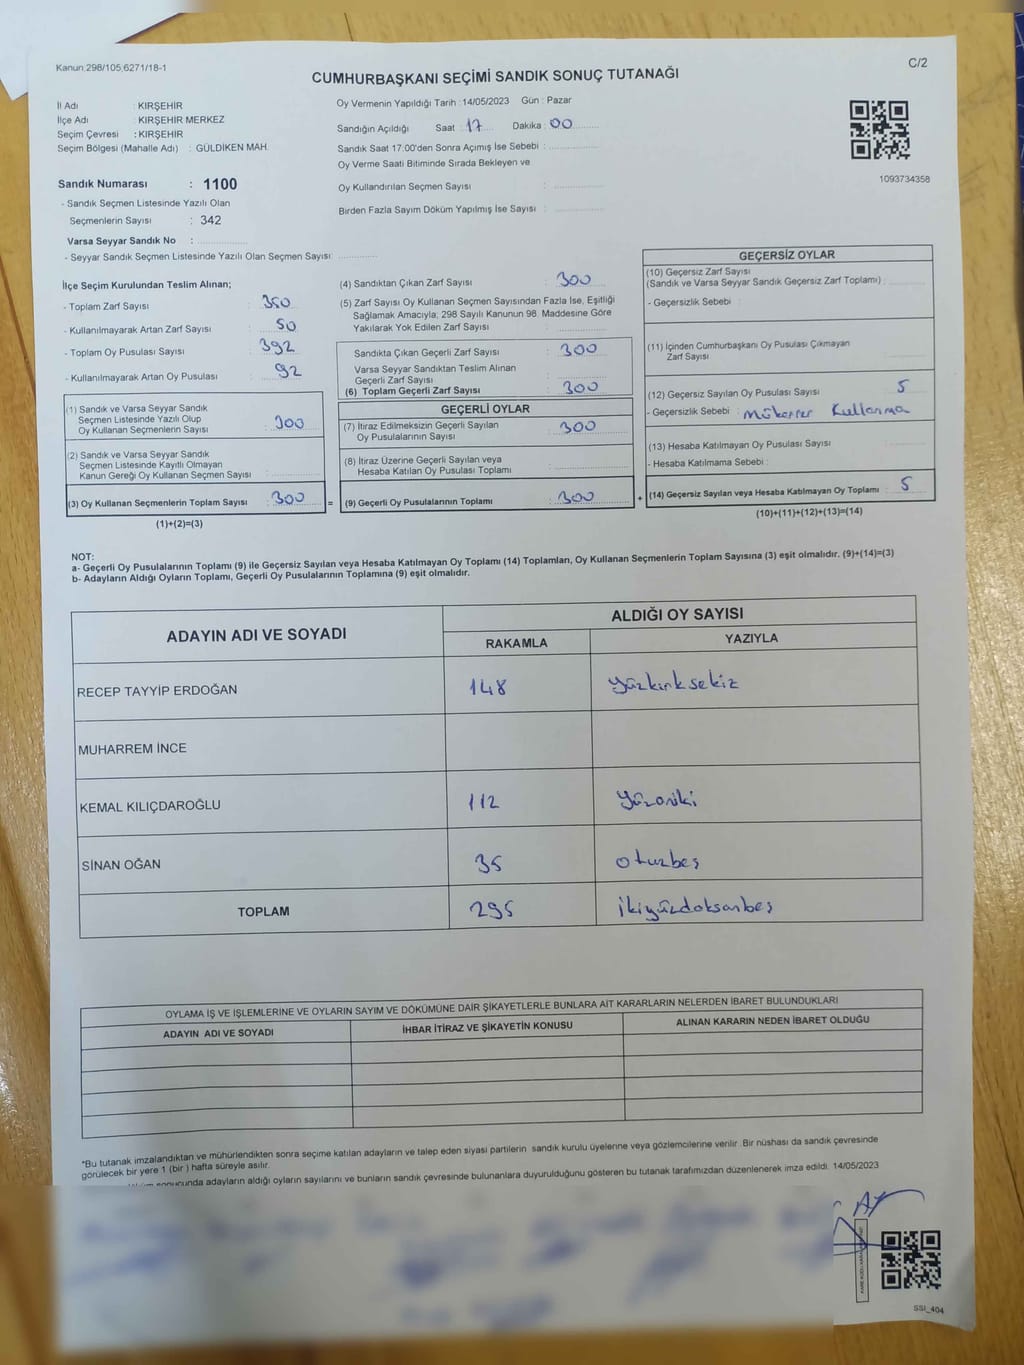 Kanun 298/105,6271/18-1
C/2
CUMHURBAŞKANI SEÇİMİ SANDIK SONUÇ TUTANAĞI
İl Adı : KIRŞEHİR
İlçe Adı : KIRŞEHİR MERKEZ
Seçim Çevresi : KIRŞEHİR
Seçim Bölgesi (Mahalle Adı) : GÜLDİKEN MAH.
Sandık Numarası : 1100
- Sandık Seçmen Listesinde Yazılı Olan
Seçmenlerin Sayısı : 342
Varsa Seyyar Sandık No :
- Seyyar Sandık Seçmen Listesinde Yazılı Olan Seçmen Sayısı:
Oy Vermenin Yapıldığı Tarih : 14/05/2023 Gün : Pazar
Sandığın Açıldığı Saat : 17 Dakika : 00
Sandık Saat 17:00'den Sonra Açımış İse Sebebi :
Oy Verme Saati Bitiminde Sırada Bekleyen ve
Oy Kullandırılan Seçmen Sayısı :
Birden Fazla Sayım Döküm Yapılmış İse Sayısı :
1093734358
İlçe Seçim Kurulundan Teslim Alınan;
- Toplam Zarf Sayısı : 350
- Kullanılmayarak Artan Zarf Sayısı : 50
- Toplam Oy Pusulası Sayısı : 392
- Kullanılmayarak Artan Oy Pusulası : 92
(1) Sandık ve Varsa Seyyar Sandık
Seçmen Listesinde Yazılı Olup
Oy Kullanan Seçmenlerin Sayısı : 300
(2) Sandık ve Varsa Seyyar Sandık
Seçmen Listesinde Kayıtlı Olmayan
Kanun Gereği Oy Kullanan Seçmen Sayısı :
(3) Oy Kullanan Seçmenlerin Toplam Sayısı : 300 =
(1)+(2)=(3)
(4) Sandıktan Çıkan Zarf Sayısı : 300
(5) Zarf Sayısı Oy Kullanan Seçmen Sayısından Fazla İse, Eşitliği
Sağlamak Amacıyla; 298 Sayılı Kanunun 98. Maddesine Göre
Yakılarak Yok Edilen Zarf Sayısı :
Sandıkta Çıkan Geçerli Zarf Sayısı : 300
Varsa Seyyar Sandıktan Teslim Alınan
Geçerli Zarf Sayısı :
(6) Toplam Geçerli Zarf Sayısı : 300
GEÇERLİ OYLAR
(7) İtiraz Edilmeksizin Geçerli Sayılan
Oy Pusulalarının Sayısı : 300
(8) İtiraz Üzerine Geçerli Sayılan veya
Hesaba Katılan Oy Pusulası Toplamı :
(9) Geçerli Oy Pusulalarının Toplamı : 300 +
GEÇERSİZ OYLAR
(10) Geçersiz Zarf Sayısı
(Sandık ve Varsa Seyyar Sandık Geçersiz Zarf Toplamı) :
- Geçersizlik Sebebi :
(11) İçinden Cumhurbaşkanı Oy Pusulası Çıkmayan
Zarf Sayısı :
(12) Geçersiz Sayılan Oy Pusulası Sayısı : 5
- Geçersizlik Sebebi : Mükerrer Kullanma
(13) Hesaba Katılmayan Oy Pusulası Sayısı :
- Hesaba Katılmama Sebebi :
(14) Geçersiz Sayılan veya Hesaba Katılmayan Oy Toplamı : 5
(10)+(11)+(12)+(13)=(14)
NOT:
a- Geçerli Oy Pusulalarının Toplamı (9) ile Geçersiz Sayılan veya Hesaba Katılmayan Oy Toplamı (14) Toplamları, Oy Kullanan Seçmenlerin Toplam Sayısına (3) eşit olmalıdır. (9)+(14)=(3)
b- Adayların Aldığı Oyların Toplamı, Geçerli Oy Pusulalarının Toplamına (9) eşit olmalıdır.
ADAYIN ADI VE SOYADI
ALDIĞI OY SAYISI
RAKAMLA YAZIYLA
RECEP TAYYİP ERDOĞAN 148 yüzkırksekiz
MUHARREM İNCE
KEMAL KILIÇDAROĞLU 112 yüzoniki
SİNAN OĞAN 35 otuzbeş
TOPLAM 295 ikiyüzdoksanbeş
OYLAMA İŞ VE İŞLEMLERİNE VE OYLARIN SAYIM VE DÖKÜMÜNE DAİR ŞİKAYETLERLE BUNLARA AİT KARARLARIN NELERDEN İBARET BULUNDUKLARI
ADAYIN ADI VE SOYADI İHBAR İTİRAZ VE ŞİKAYETİN KONUSU ALINAN KARARIN NEDEN İBARET OLDUĞU
*Bu tutanak imzalandıktan ve mühürlendikten sonra seçime katılan adayların ve talep eden siyasi partilerin sandık kurulu üyelerine veya gözlemcilerine verilir. Bir nüshası da sandık çevresinde
görülecek bir yere 1 (bir) hafta süreyle asılır.
sonucunda adayların aldığı oyların sayılarını ve bunların sandık çevresinde bulunanlara duyurulduğunu gösteren bu tutanak tarafımızdan düzenlenerek imza edildi. 14/05/2023
SSI_404